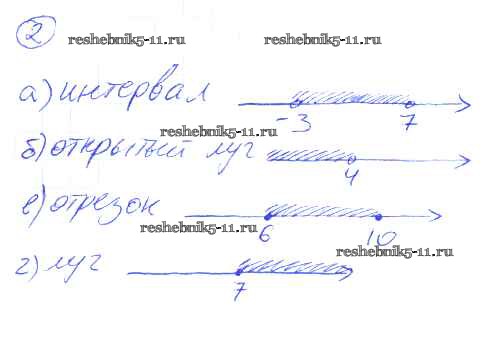 2
reshebnik5-11.ru reshebnik5-11.ru
а) интервал
-3 7
reshebnik5-11.ru
б) открытый луч
4
в) отрезок
6 10
reshebnik5-11.ru
reshebnik5-11.ru
г) луч
7